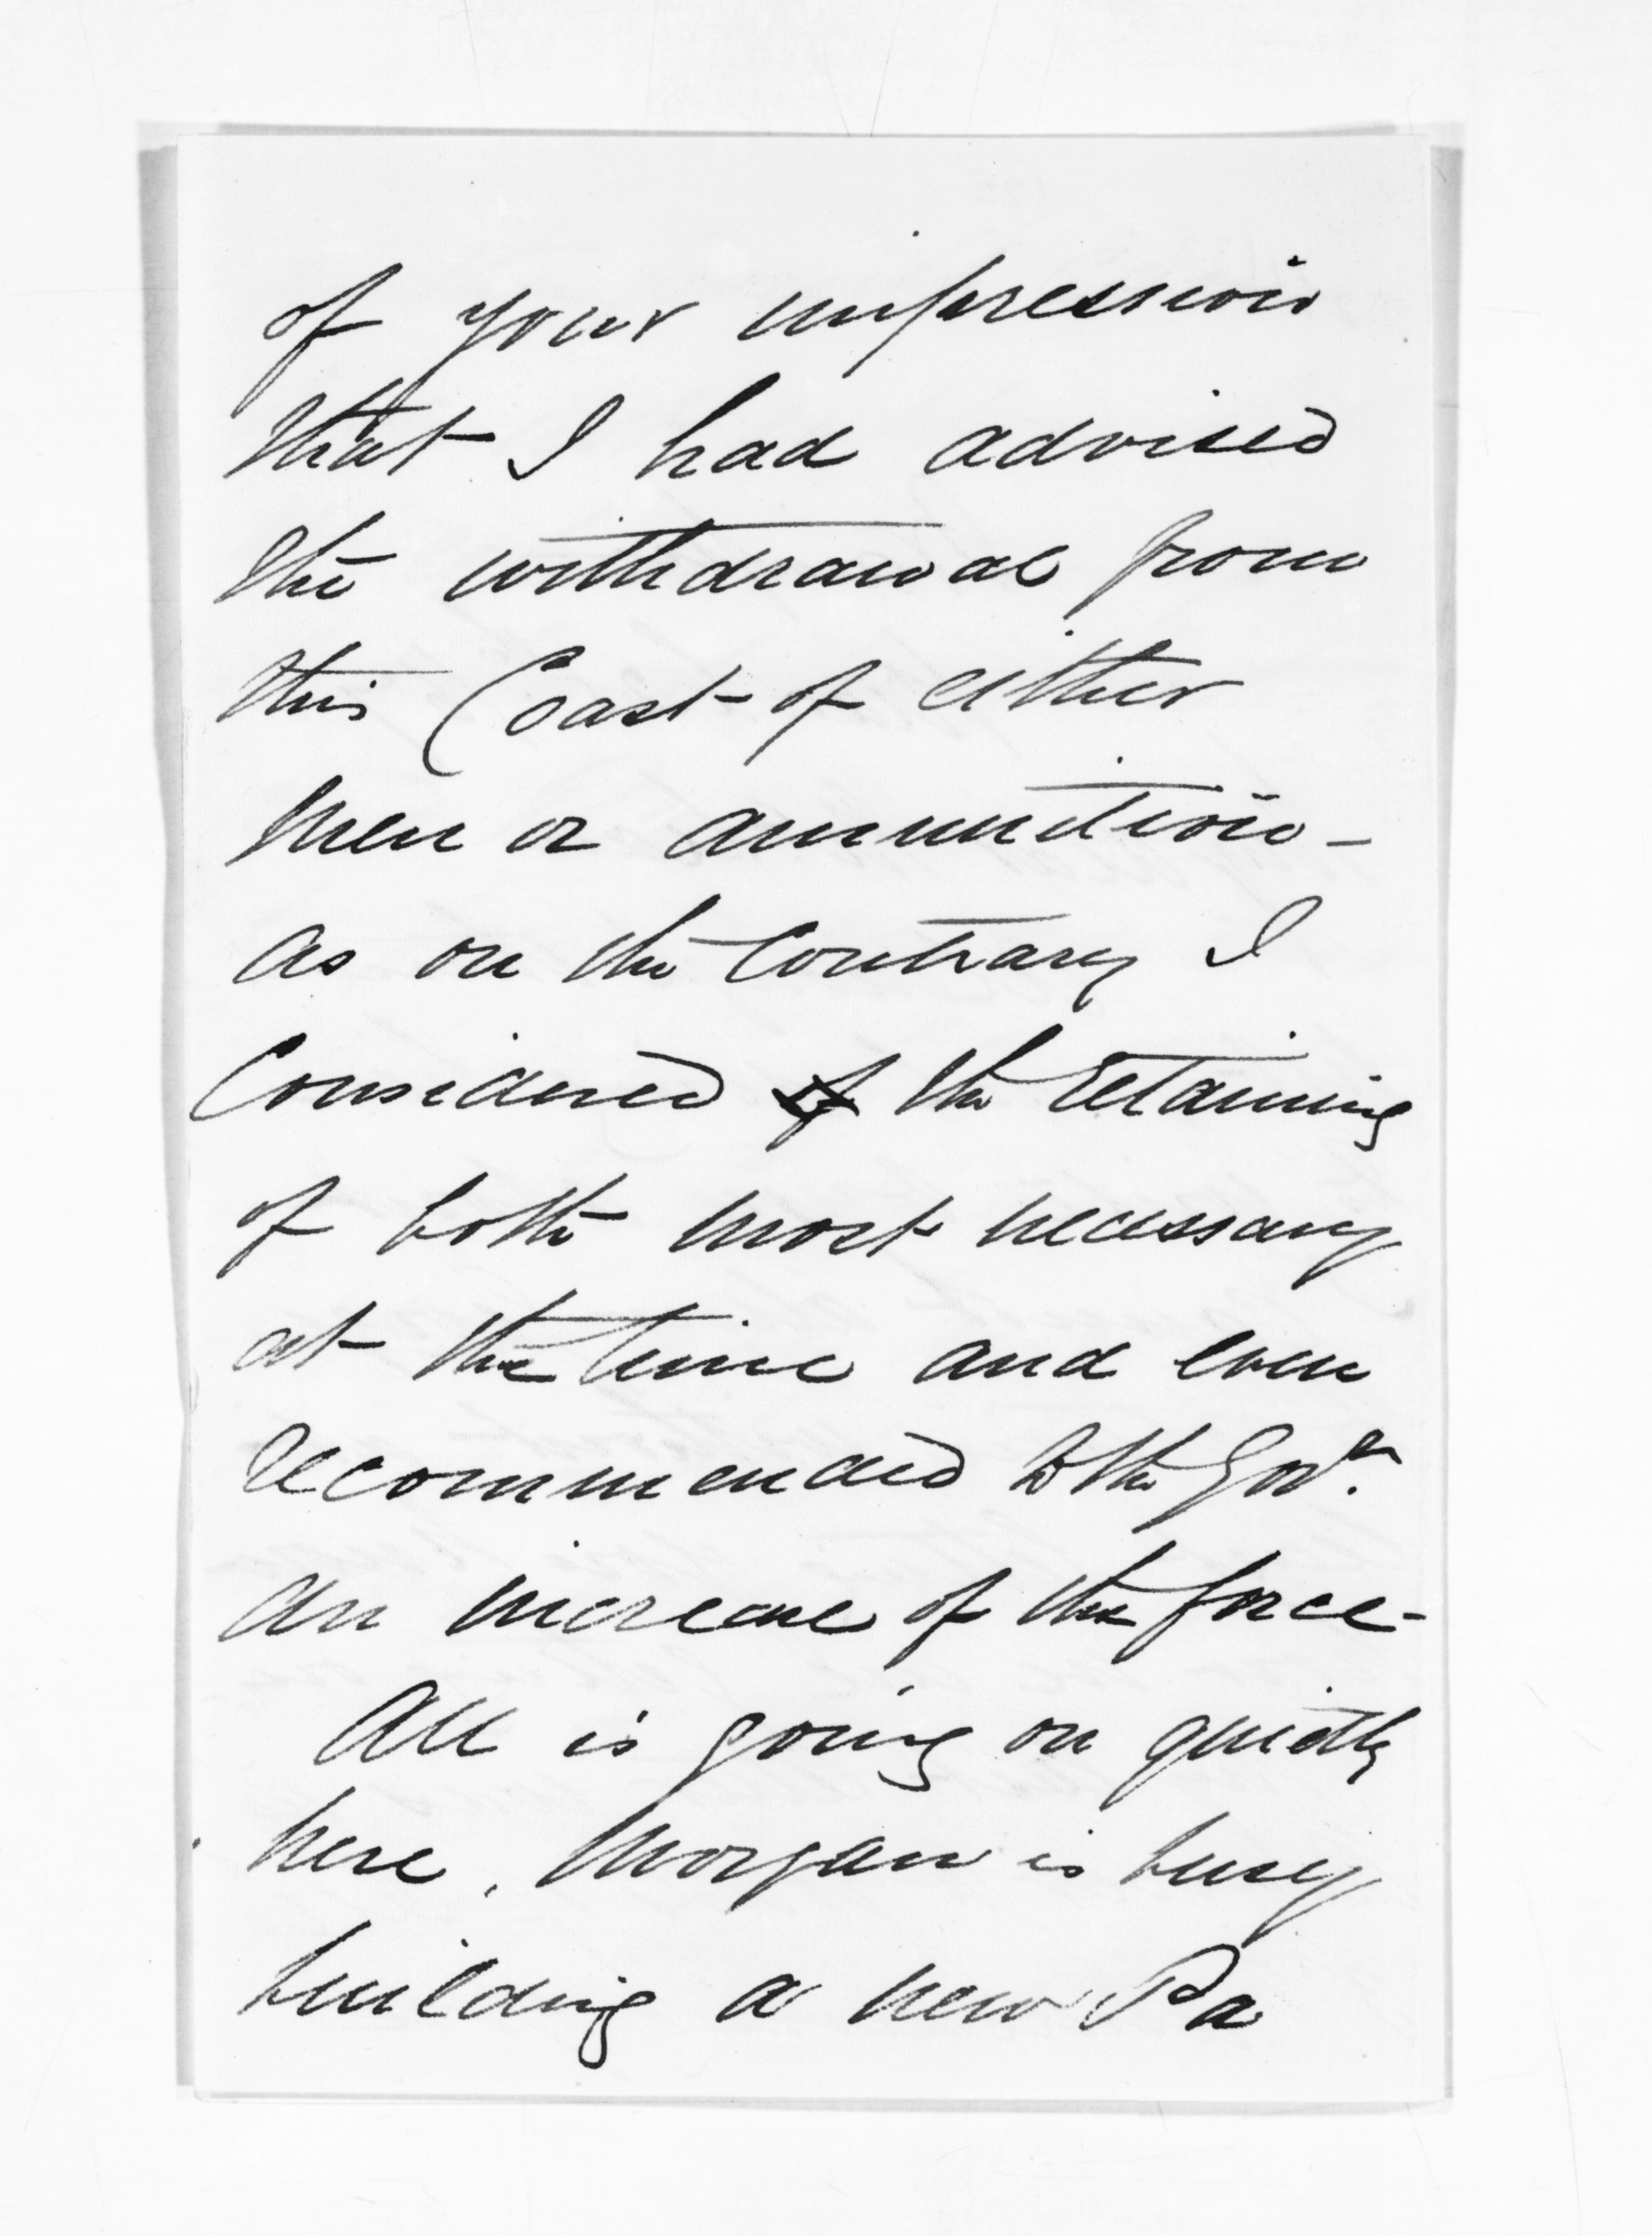 of your impression
that I had advised
the withdrawal from
this Coast of either
Men or ammunition -
as on the Contrary I
Considered of the retaining
of both most necessary
at the time and even
recommended to the Govr.
an increase of the force -
All is going on quietly
here, Morgan is busy
building a new Pa